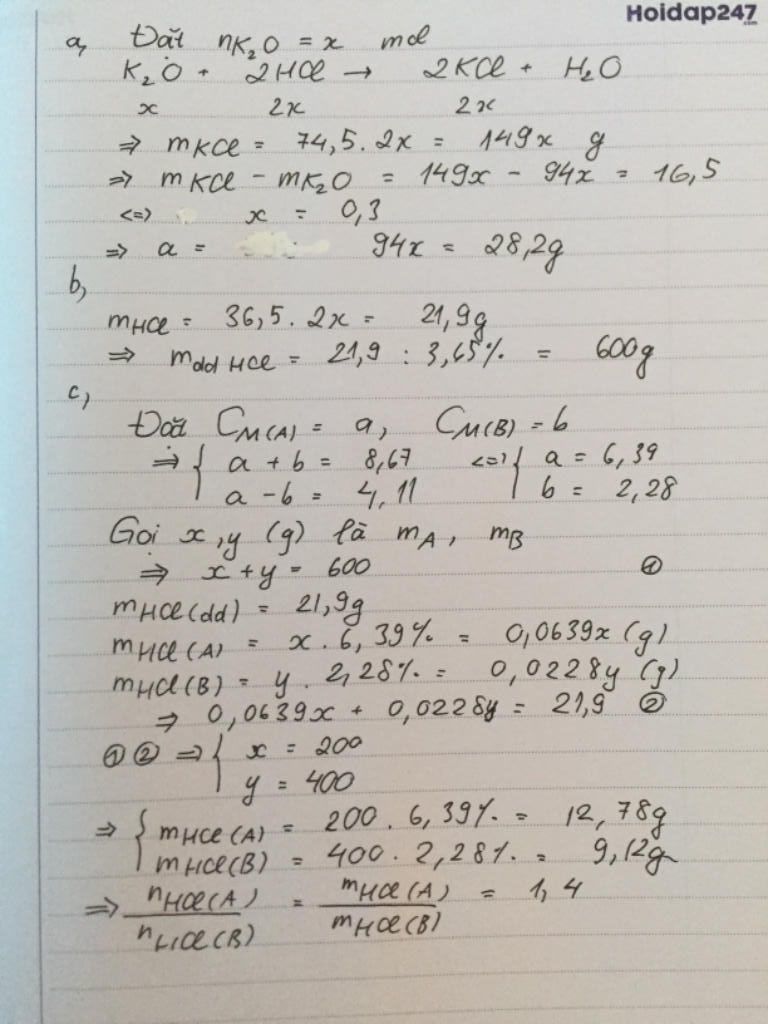 Hoidap247
.com
a, Đặt nK₂O = x mol
K₂O + 2HCl → 2KCl + H₂O
x 2x 2x
⇒ mKCl = 74,5 . 2x = 149x g
⇒ mKCl - mK₂O = 149x - 94x = 16,5
<=> x = 0,3
⇒ a = 94x = 28,2g
b,
mHCl = 36,5 . 2x = 21,9g
⇒ mdd HCl = 21,9 : 3,65% = 600g
c,
Đặt CM(A) = a, CM(B) = b
⇒ { a + b = 8,67 <=> { a = 6,39
a - b = 4,11 b = 2,28
Gọi x, y (g) là mA, mB
⇒ x + y = 600 ①
mHCl(dd) = 21,9g
mHCl(A) = x . 6,39% = 0,0639x (g)
mHCl(B) = y . 2,28% = 0,0228y (g)
⇒ 0,0639x + 0,0228y = 21,9 ②
① ② ⇒ { x = 200
y = 400
⇒ { mHCl(A) = 200 . 6,39% = 12,78g
mHCl(B) = 400 . 2,28% = 9,12g
⇒ nHCl(A) / nHCl(B) = mHCl(A) / mHCl(B) = 1,4